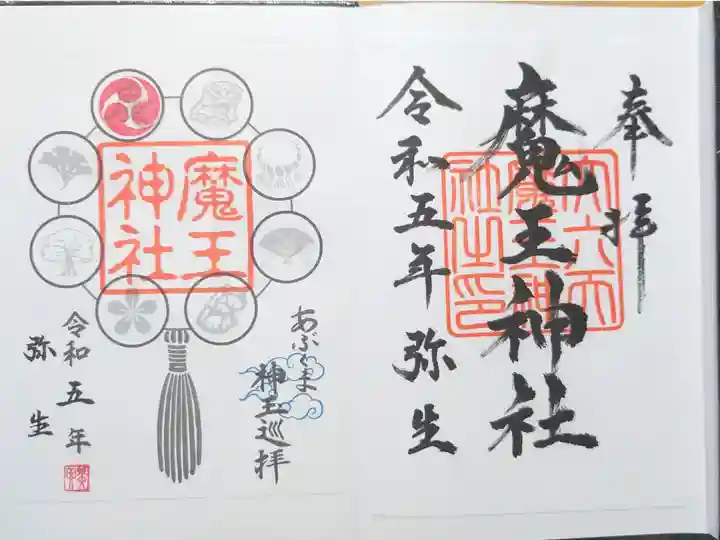 奉拝
魔王神社
令和五年 弥生
大六天
魔王神
社之印
魔王
神社
あぶくま
神玉巡拝
令和五年
弥生